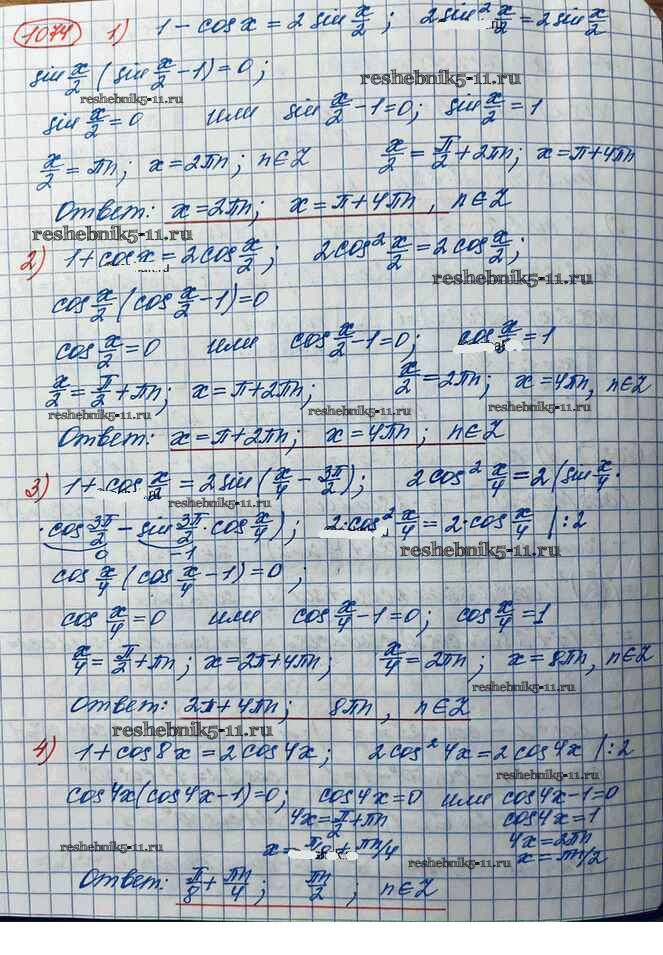 1074 1) 1 - cos x = 2 sin x/2 ; 2sin² x/2 = 2 sin x/2
sin x/2 (sin x/2 - 1) = 0 ;
reshebnik5-11.ru
sin x/2 = 0 или sin x/2 - 1 = 0 ; sin x/2 = 1
x/2 = πn ; x = 2πn ; n ∈ Z x/2 = π/2 + 2πn ; x = π + 4πn
Ответ: x = 2πn ; x = π + 4πn , n ∈ Z
reshebnik5-11.ru
2) 1 + cos x = 2 cos x/2 ; 2cos² x/2 = 2 cos x/2 ;
reshebnik5-11.ru
cos x/2 (cos x/2 - 1) = 0
cos x/2 = 0 или cos x/2 - 1 = 0 ; cos x/2 = 1
x/2 = π/2 + πn ; x = π + 2πn ; x/2 = 2πn ; x = 4πn , n ∈ Z
reshebnik5-11.ru reshebnik5-11.ru reshebnik5-11.ru
Ответ: x = π + 2πn ; x = 4πn ; n ∈ Z
3) 1 + cos x/2 = 2 sin (x/4 - 3π/2) ; 2cos² x/4 = 2 (sin x/4 ·
reshebnik5-11.ru
· cos 3π/2 - sin 3π/2 · cos x/4) ; 2·cos² x/4 = 2·cos x/4 | :2
0 -1
reshebnik5-11.ru
cos x/4 (cos x/4 - 1) = 0 ;
cos x/4 = 0 или cos x/4 - 1 = 0 ; cos x/4 = 1
x/4 = π/2 + πn ; x = 2π + 4πn ; x/4 = 2πn ; x = 8πn , n ∈ Z
reshebnik5-11.ru
Ответ: 2π + 4πn ; 8πn , n ∈ Z
reshebnik5-11.ru
4) 1 + cos 8x = 2 cos 4x ; 2cos² 4x = 2 cos 4x | :2
reshebnik5-11.ru
cos 4x (cos 4x - 1) = 0 ; cos 4x = 0 или cos 4x - 1 = 0
4x = π/2 + πn cos 4x = 1
x = π/8 + πn/4 4x = 2πn
reshebnik5-11.ru x = πn/2
reshebnik5-11.ru
Ответ: π/8 + πn/4 ; πn/2 ; n ∈ Z